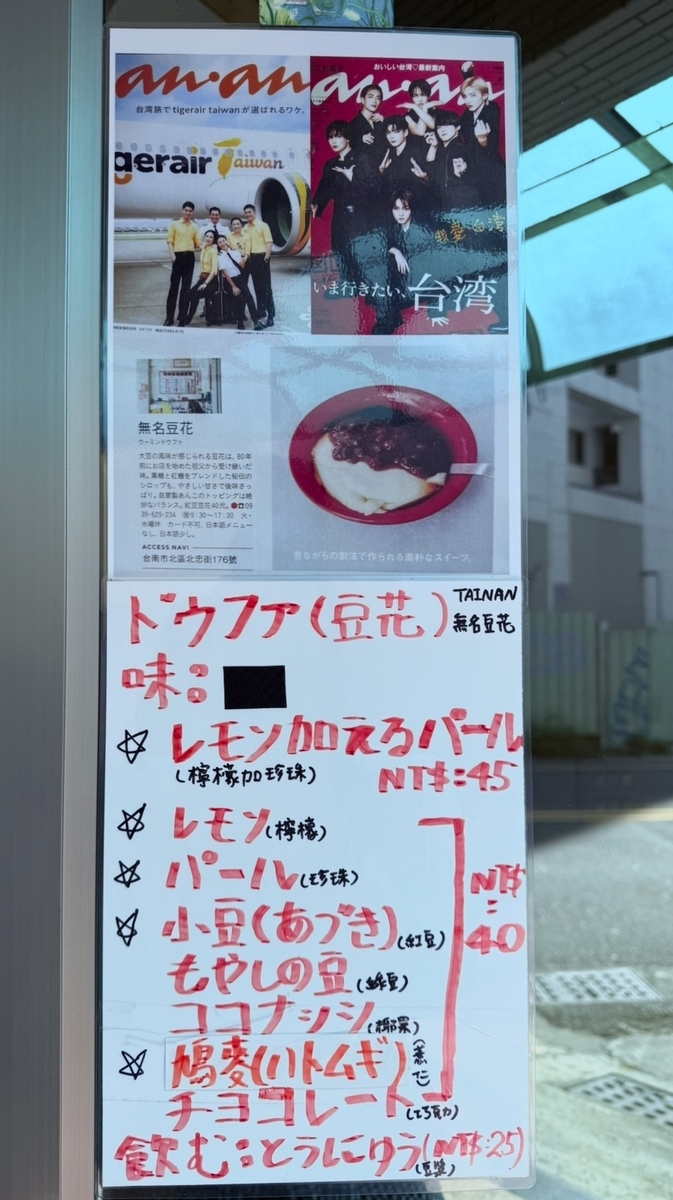 an·an
台湾旅で tigerair taiwan が選ばれるワケ。
gerair Taiwan
おいしい台湾♡最新案内
an·an
我愛台湾
いま行きたい、台湾
無名豆花
ウーミンドウファ
大豆の風味が感じられる豆花は、80年
前にお店を始めた祖父から受け継いだ
味。黒糖と紅糖をブレンドした秘伝の
シロップも、やさしい甘さで後味さっ
ぱり。自家製あんこのトッピングは絶
妙なバランス。紅豆豆花40元。●☎09
39-629-234 ㊺9:30～17:30 火・
水曜休 カード不可、日本語メニュー
なし、日本語少し。
ACCESS NAVI
台南市北區北忠街176號
昔ながらの製法で作られる素朴なスイーツ。
ドウファ(豆花) TAINAN
無名豆花
味:
☆ レモン加えるパール
(檸檬加珍珠) NT$:45
☆ レモン(檸檬)
☆ パール(珍珠)
☆ 小豆(あづき)(紅豆)
NT$:40
もやしの豆(綠豆)
ココナッシ(椰果)
☆ 鳩麥(ハトムギ)(薏仁)
チョコレート(巧克力)
飲む:とうにゆう(NT$:25)
(豆漿)